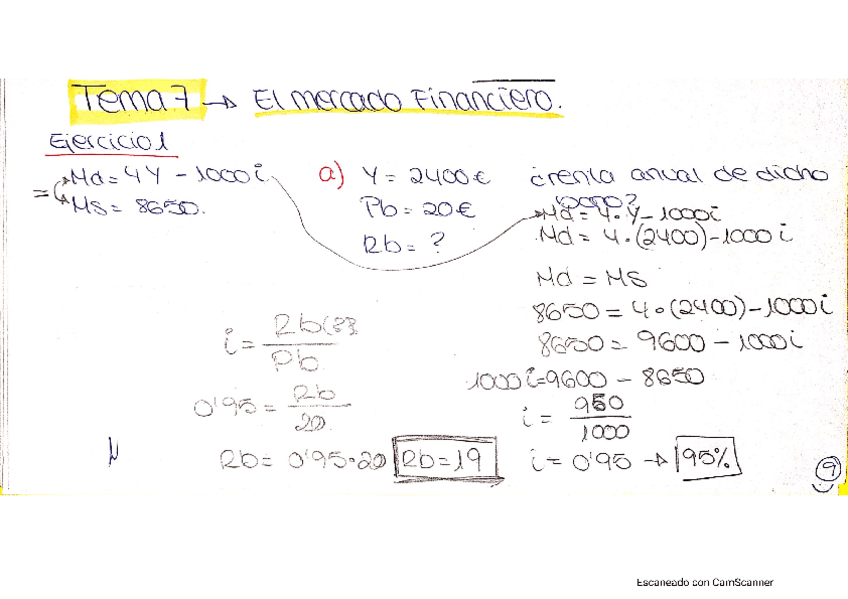 Tema 7 → El mercado Financiero.
Ejercicio 1
Md = 4Y - 1000i
= Ms = 8650.
a) Y = 2400€ ¿renta anual de dicho bono?
Pb = 20€
Rb = ?
Md = 4 · Y - 1000i
Md = 4 · (2400) - 1000i
Md = MS
8650 = 4 · (2400) - 1000i
8650 = 9600 - 1000i
1000i = 9600 - 8650
i = 950 / 1000
i = 0'95 → 95%
i = Rb / Pb
0'95 = Rb / 20
Rb = 0'95 · 20 Rb = 19
9
Escaneado con CamScanner